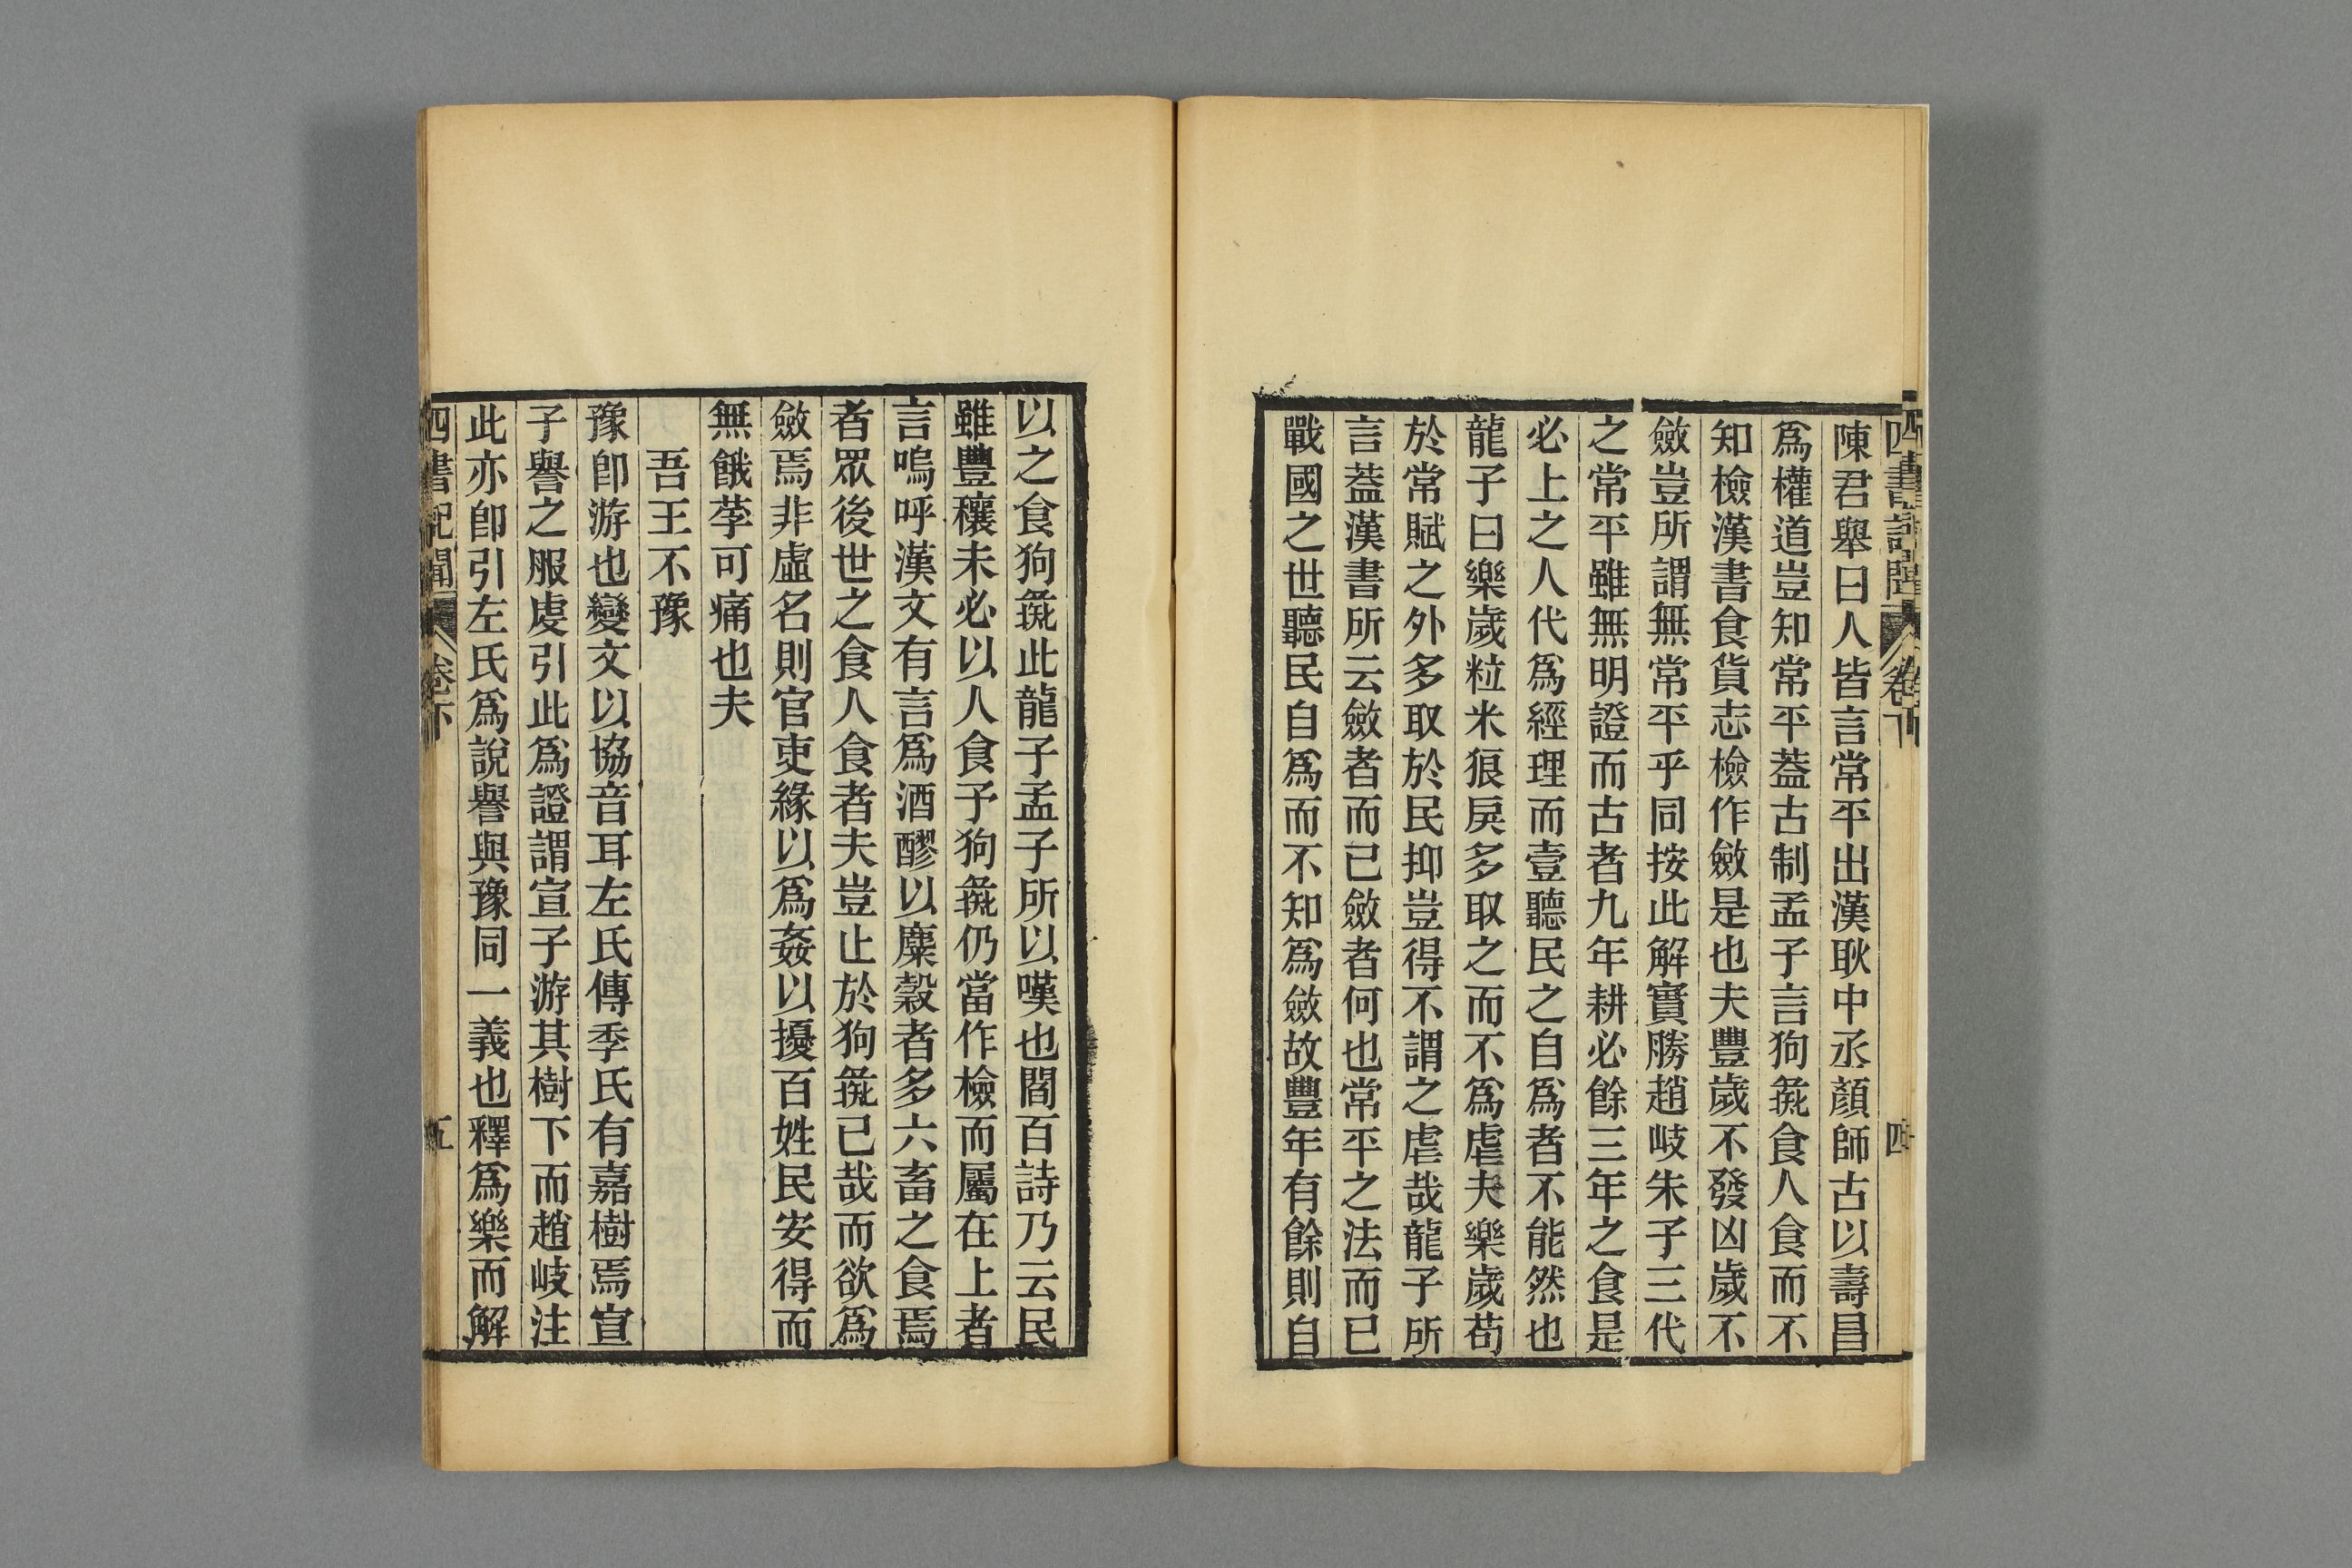 四書記聞 卷下 四
陳君舉曰人皆言常平出漢耿中丞顏師古以壽昌
爲權道豈知常平葢古制孟子言狗彘食人食而不
知檢漢書食貨志檢作斂是也夫豐歲不發凶歲不
斂豈所謂無常平乎同按此解實勝趙岐朱子三代
之常平雖無明證而古者九年耕必餘三年之食是
必上之人代爲經理而壹聽民之自爲者不能然也
龍子曰樂歲粒米狼戾多取之而不爲虐夫樂歲苟
於常賦之外多取於民抑豈得不謂之虐哉龍子所
言葢漢書所云斂者而已斂者何也常平之法而已
戰國之世聽民自爲而不知爲斂故豐年有餘則自
以之食狗彘此龍子孟子所以嘆也閻百詩乃云民
雖豐穰未必以人食予狗彘仍當作檢而屬在上者
言嗚呼漢文有言爲酒醪以麋穀者多六畜之食焉
者眾後世之食人食者夫豈止於狗彘已哉而欲爲
斂焉非虛名則官吏緣以爲姦以擾百姓民安得而
無餓莩可痛也夫
吾王不豫
豫卽游也變文以協音耳左氏傳季氏有嘉樹焉宣
子譽之服虔引此爲證謂宣子游其樹下而趙岐注
此亦卽引左氏爲說譽與豫同一義也釋爲樂而解
四書記聞 卷下 五